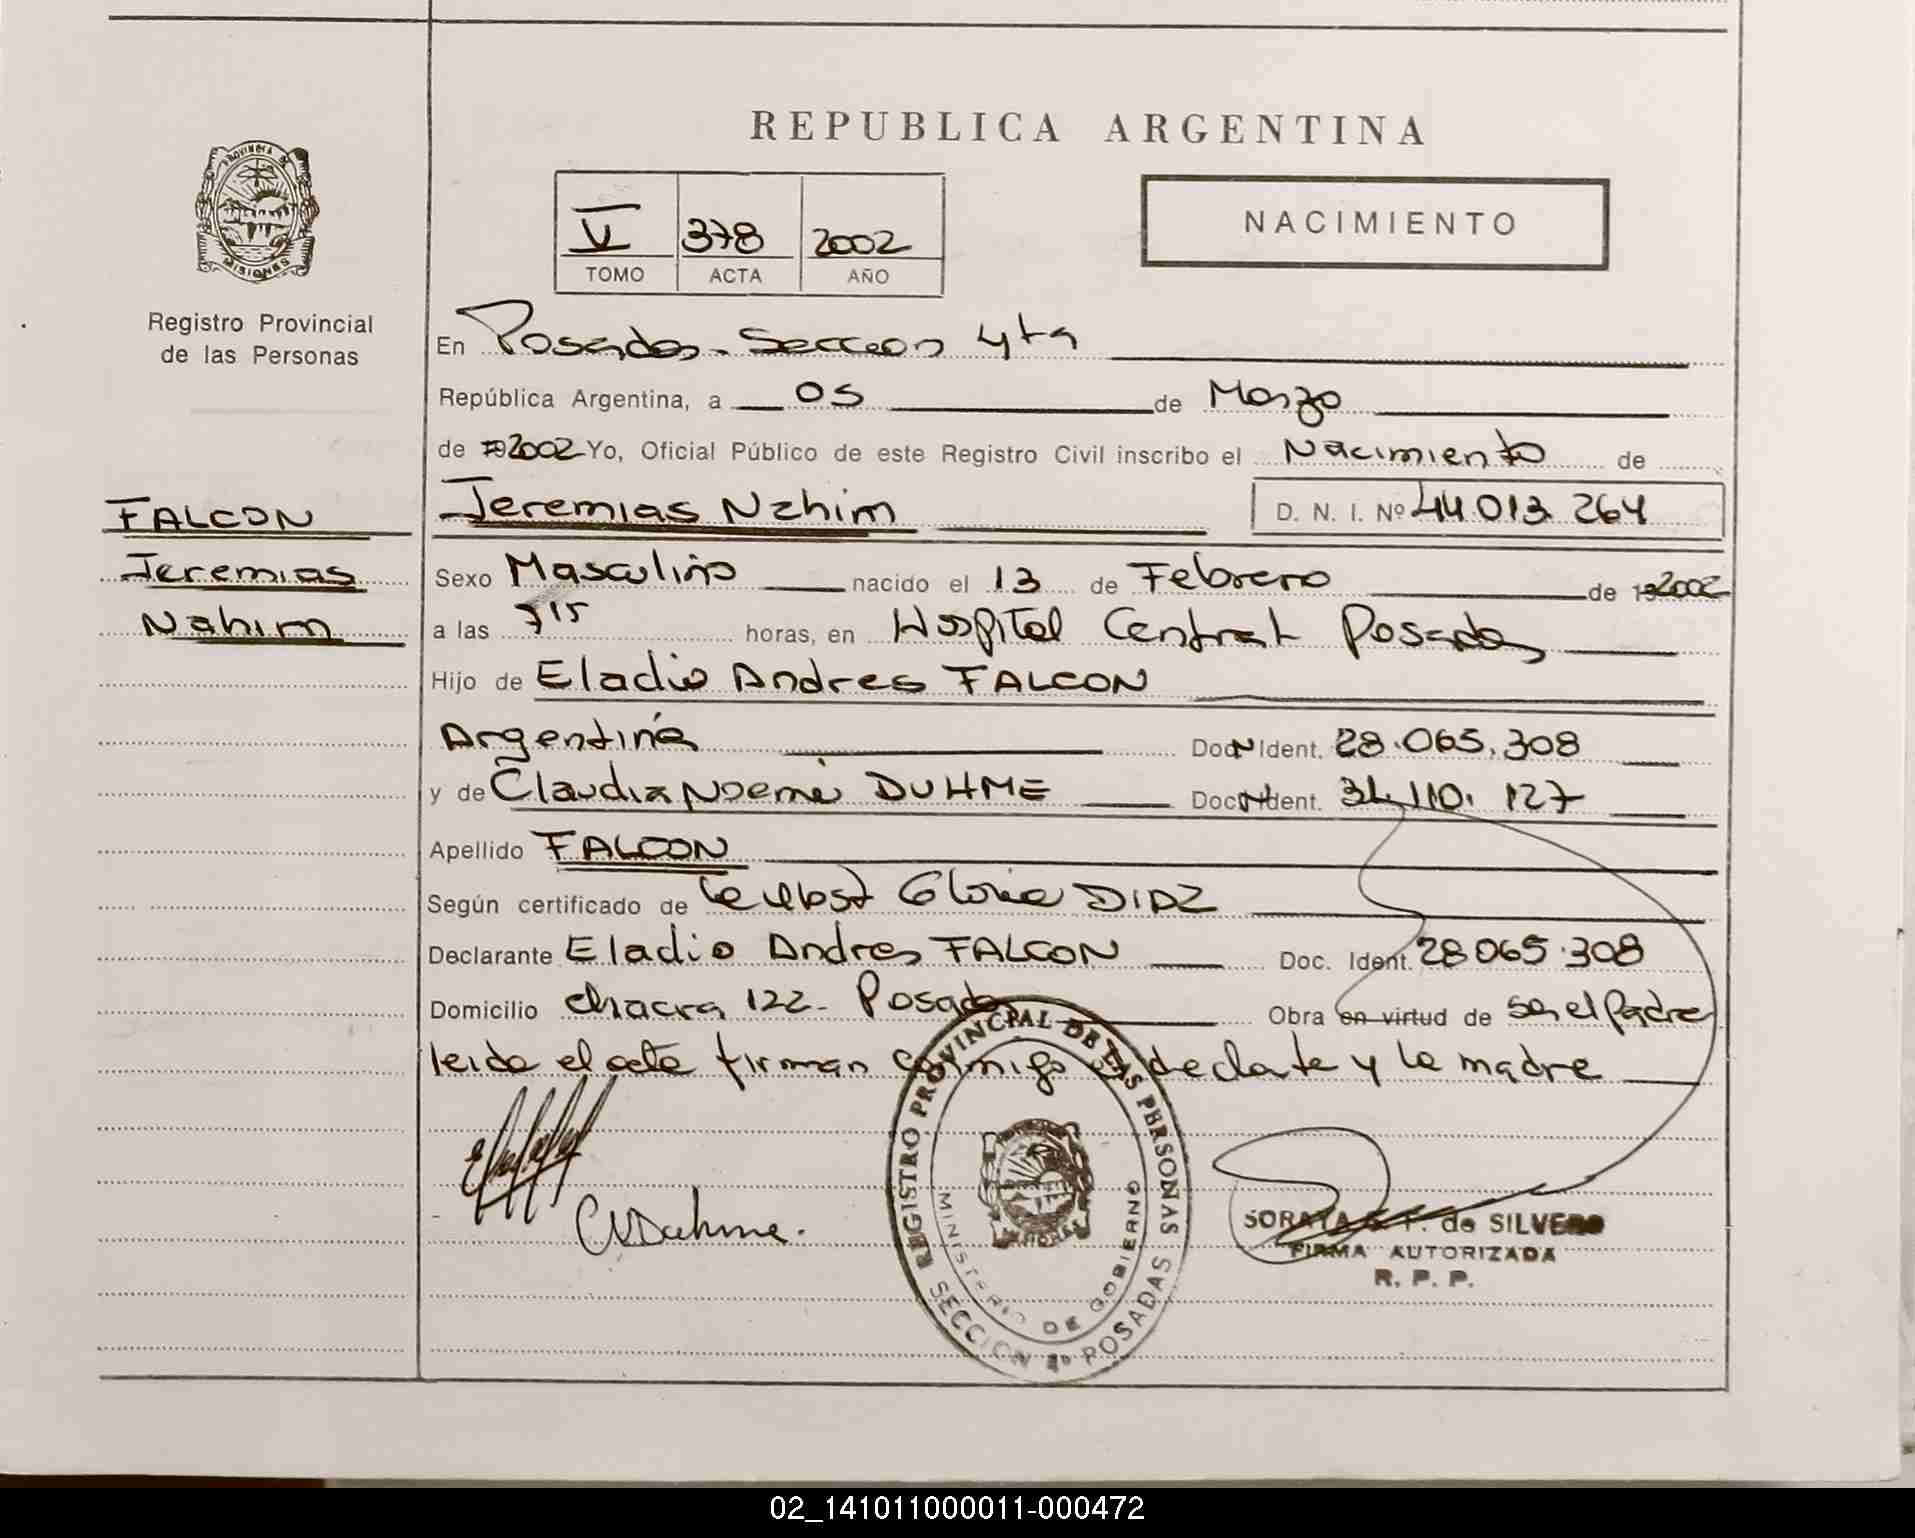 REPUBLICA ARGENTINA
PROVINCIA DE MISIONES
Registro Provincial
de las Personas
V 378 2002
TOMO ACTA AÑO
NACIMIENTO
En Posadas - Seccion 4ta
República Argentina, a 05 de Marzo
de 2002 Yo, Oficial Público de este Registro Civil inscribo el Nacimiento de
FALCON
Jeremias
Nahim
Jeremias Nahim D. N. I. Nº 44.013.264
Sexo Masculino nacido el 13 de Febrero de 2002
a las 7 15 horas, en Hospital Central Posadas
Hijo de Eladio Andres FALCON
Argentina Doc. Ident. 28.065.308
y de Claudia Noemi DUHME Doc. Ident. 31.110.127
Apellido FALCON
Según certificado de Gloria DIAZ
Declarante Eladio Andres FALCON Doc. Ident. 28.065.308
Domicilio chacra 122 - Posadas Obra en virtud de ser el padre
leida el acta firman conmigo el declante y la madre
CNDuhme.
REGISTRO PROVINCPAL DE LAS PERSONAS
MINISTERIO DE GOBIERNO
SECCION 4º POSADAS
SORAYA F. de SILVERO
FIRMA AUTORIZADA
R. P. P.
02_141011000011-000472